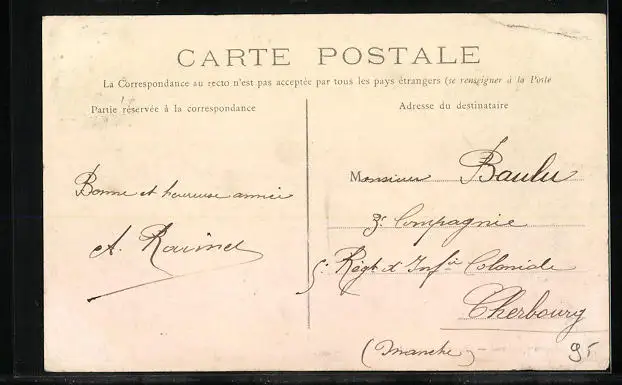 CARTE POSTALE
La Correspondance au recto n'est pas acceptée par tous les pays étrangers (se renseigner à la Poste
Partie réservée à la correspondance
Bonne et heureuse année
A.
Adresse du destinataire
Monsieur Baulu
3e Compagnie
5e Régt d'Infie Coloniale
Cherbourg
(Manche)